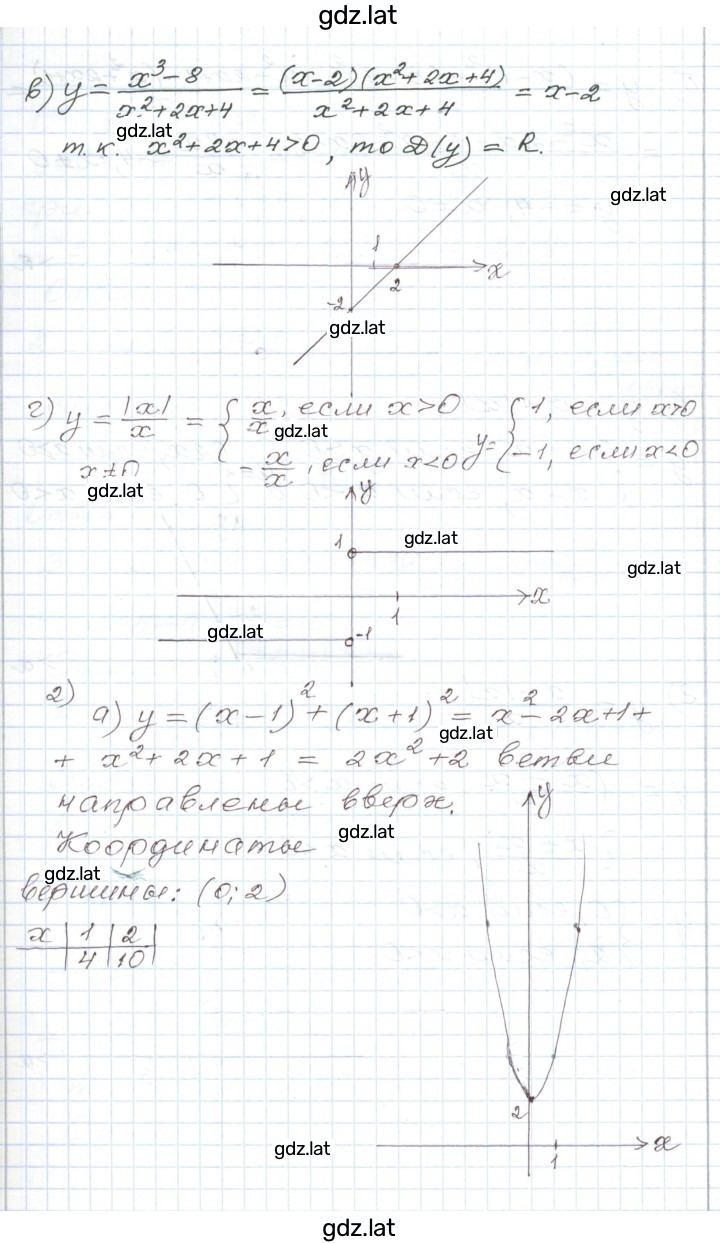 gdz.lat
в) y = x³-8 / x²+2x+4 = (x-2)(x²+2x+4) / x²+2x+4 = x-2
gdz.lat
т.к. x²+2x+4>0, то D(y) = R.
y
gdz.lat
1
x
2
-2
gdz.lat
г) y = |x| / x = { x/x, если x>0 y= { 1, если x>0
gdz.lat
x≠0 - x/x, если x<0 -1, если x<0
gdz.lat
y
1
gdz.lat
gdz.lat
x
1
gdz.lat
-1
2)
а) y = (x-1)² + (x+1)² = x² - 2x+1+
gdz.lat
+ x²+2x+1 = 2x²+2 ветви
направлены вверх.
y
gdz.lat
Координаты
gdz.lat
вершины: (0; 2)
x | 1 | 2 |
| 4 | 10 |
2
gdz.lat
x
1
gdz.lat